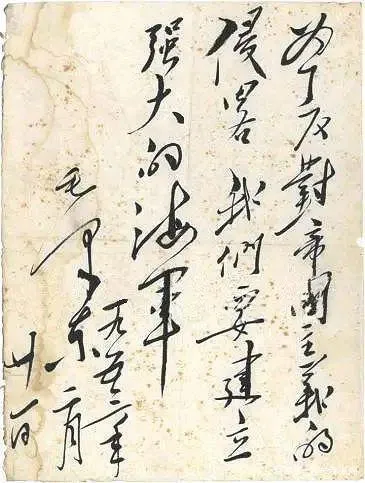 为了反對帝國主義的
侵略 我們要建立
强大的海軍
毛澤东
一九五三年
二月
廿一日